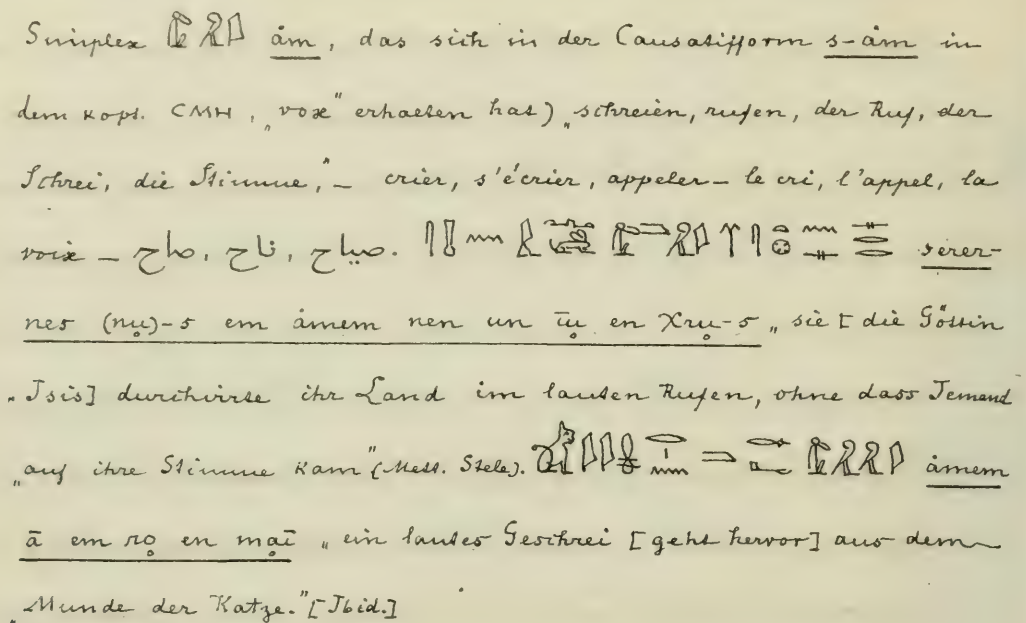 Simplex åm, das sich in der Causatifform s-åm in
dem kopt. ⲤⲘⲎ, „vox" erhalten hat) „schreien, rufen, der Ruf, der
Schrei, die Stimme," – crier, s'écrier, appeler – le cri, l'appel, la
voix – صياح, ناح, صاح. serer-
nes (nu̥)-s em åmem nen un t̄u̥ en χru̥-s „sie [die Göttin
„Isis] durchirrte ihr Land im lauten Rufen, ohne dass Jemand
„auf ihre Stimme kam" (Mett. Stele). åmem
ā em ro̥ en mạī „ein lautes Geschrei [geht hervor] aus dem
„Munde der Katze." [Ibid.]